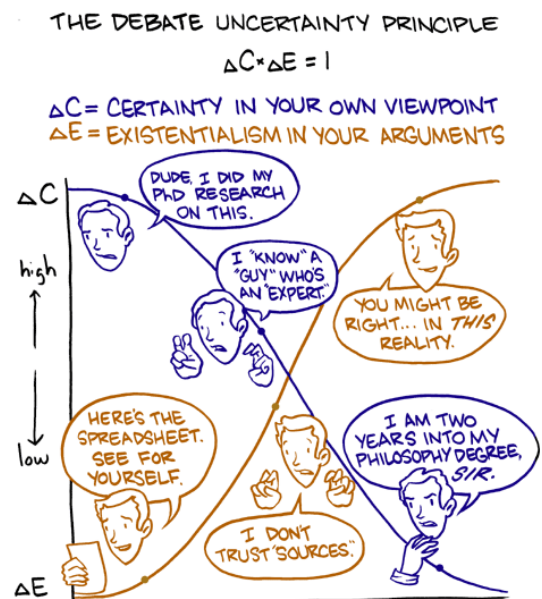 THE DEBATE UNCERTAINTY PRINCIPLE
ΔC*ΔE = 1
ΔC = CERTAINTY IN YOUR OWN VIEWPOINT
ΔE = EXISTENTIALISM IN YOUR ARGUMENTS
ΔC
high
low
ΔE
DUDE, I DID MY
PhD RESEARCH
ON THIS.
I "KNOW" A
"GUY" WHO'S
AN "EXPERT."
YOU MIGHT BE
RIGHT... IN THIS
REALITY.
HERE'S THE
SPREADSHEET.
SEE FOR
YOURSELF.
I DON'T
TRUST "SOURCES."
I AM TWO
YEARS INTO MY
PHILOSOPHY DEGREE,
SIR.